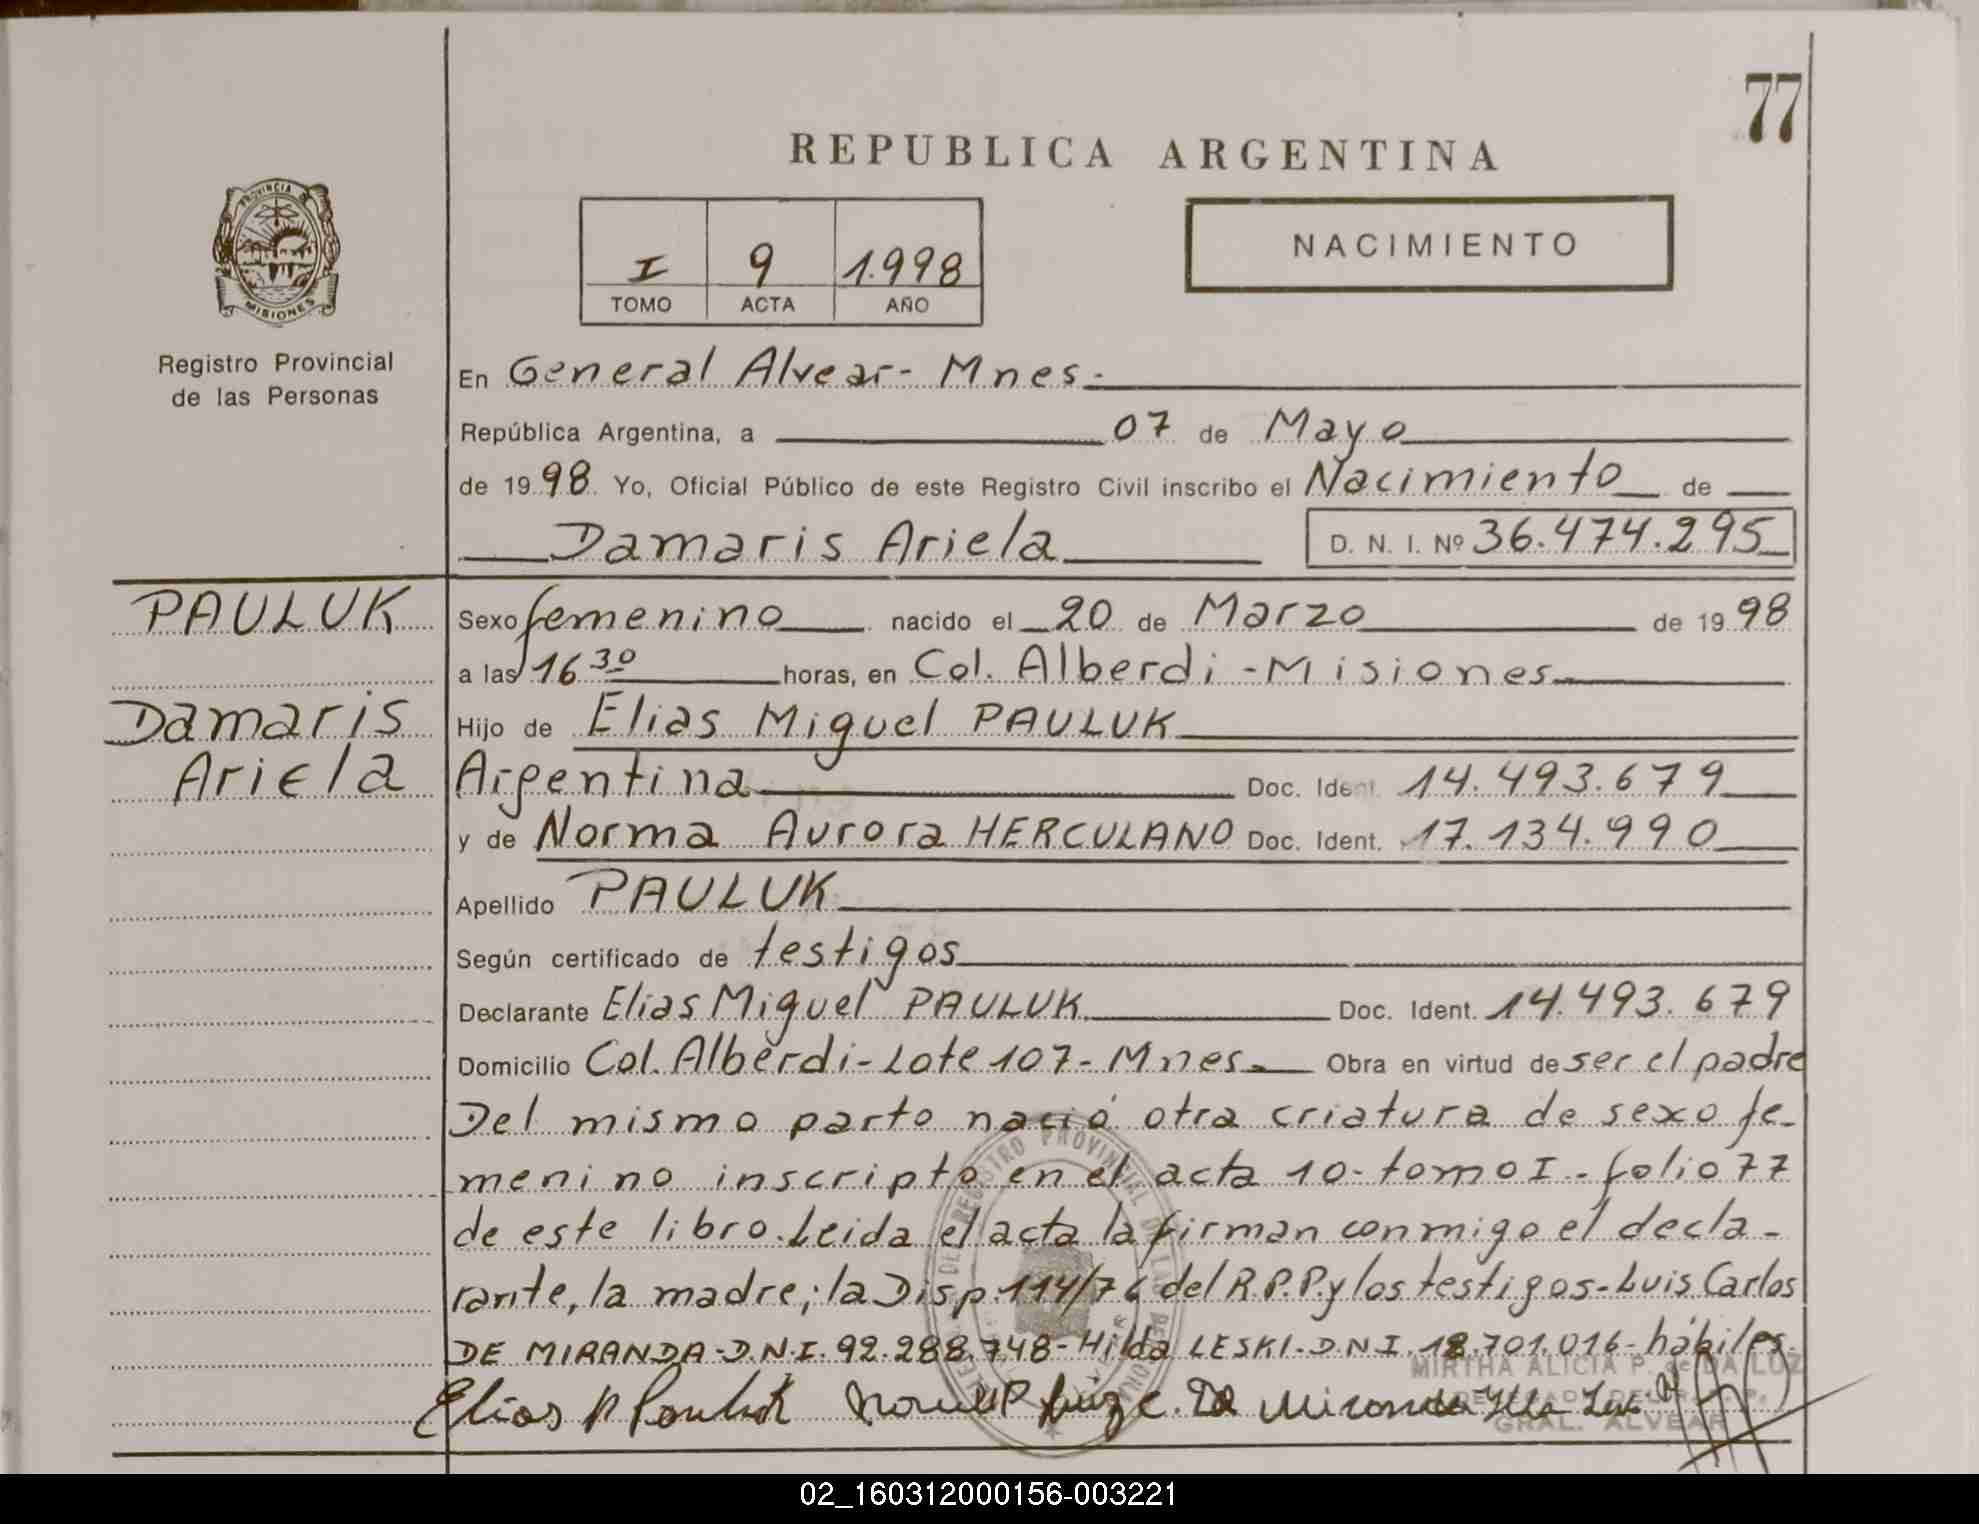 77
REPUBLICA ARGENTINA
PROVINCIA
MISIONES
Registro Provincial
de las Personas
I 9 1.998
TOMO ACTA AÑO
NACIMIENTO
En General Alvear - Mnes -
República Argentina, a 07 de Mayo
de 1998 Yo, Oficial Público de este Registro Civil inscribo el Nacimiento de
Damaris Ariela D. N. I. Nº 36.474.295
PAULUK
Damaris
Ariela
Sexo femenino nacido el 20 de Marzo de 1998
a las 16 30 horas, en Col. Alberdi - Misiones
Hijo de Elias Miguel PAULUK
Argentina Doc. Ident. 14.493.679
y de Norma Aurora HERCULANO Doc. Ident. 17.134.990
Apellido PAULUK
Según certificado de testigos
Declarante Elias Miguel PAULUK Doc. Ident. 14.493.679
Domicilio Col. Alberdi - Lote 107 - Mnes Obra en virtud de ser el padre
Del mismo parto nació otra criatura de sexo fe-
menino inscripto en el acta 10 - tomo I - folio 77
de este libro. Leida el acta la firman conmigo el decla-
rante, la madre; la Disp. 114/76 del R.P.P. y los testigos - Luis Carlos
DE MIRANDA - D.N.I. 92.288.748 - Hilda LESKI - D N I. 18.701.016 - hábiles.
MIRTHA ALICIA P. de DA LUZ
GRAL. ALVEAR
02_160312000156-003221